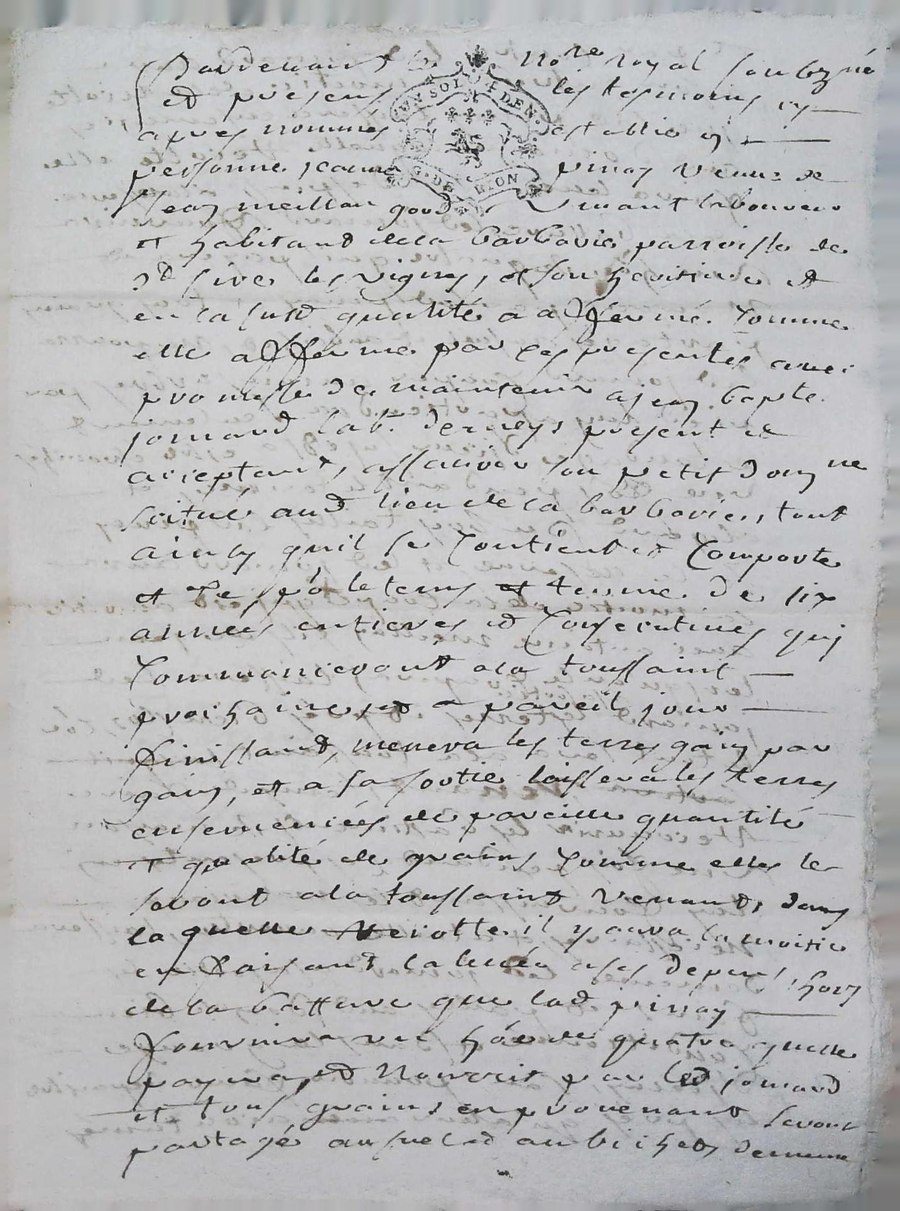 Pardevant le no.re royal soubzné
et presens les tesmoins cy
apres nommés establie en
personne jeanne pinay veuve de
jean meillan quand vivant laboureur
et habitand de la barbarie parroisse de
st sire les vignes, et son heritiere et
en la susd qualité a affermé comme
elle afferme par ces presentes avec
promesse de maintenir a jean bapte
jomard lab.r present et
acceptant, assavoir son petit domne
scitué aud lieu de la barbarie, tout
ainsy quil se contient et comporte
et ce p.r le tems et terme de six
années entieres et consecutives qui
commanceront a la toussaint
prochaine et a pareil jour
finissant, menera les terres gain par
gain, et a sa sortie laissera les terres
ensemencées de pareille quantité
et qualité de grains comme elles le
seront a la toussaint venant, dans
la quelle recolte il y aura la moitié
en faisant la levée a ses depens, hors
de la batture que lad pinay
fournira un hōe de quatre quelle
payera, et nourrit par led jomard
et tous grains en provenant seront
partagé au suel et au bichet, demeure
G. DE LYON